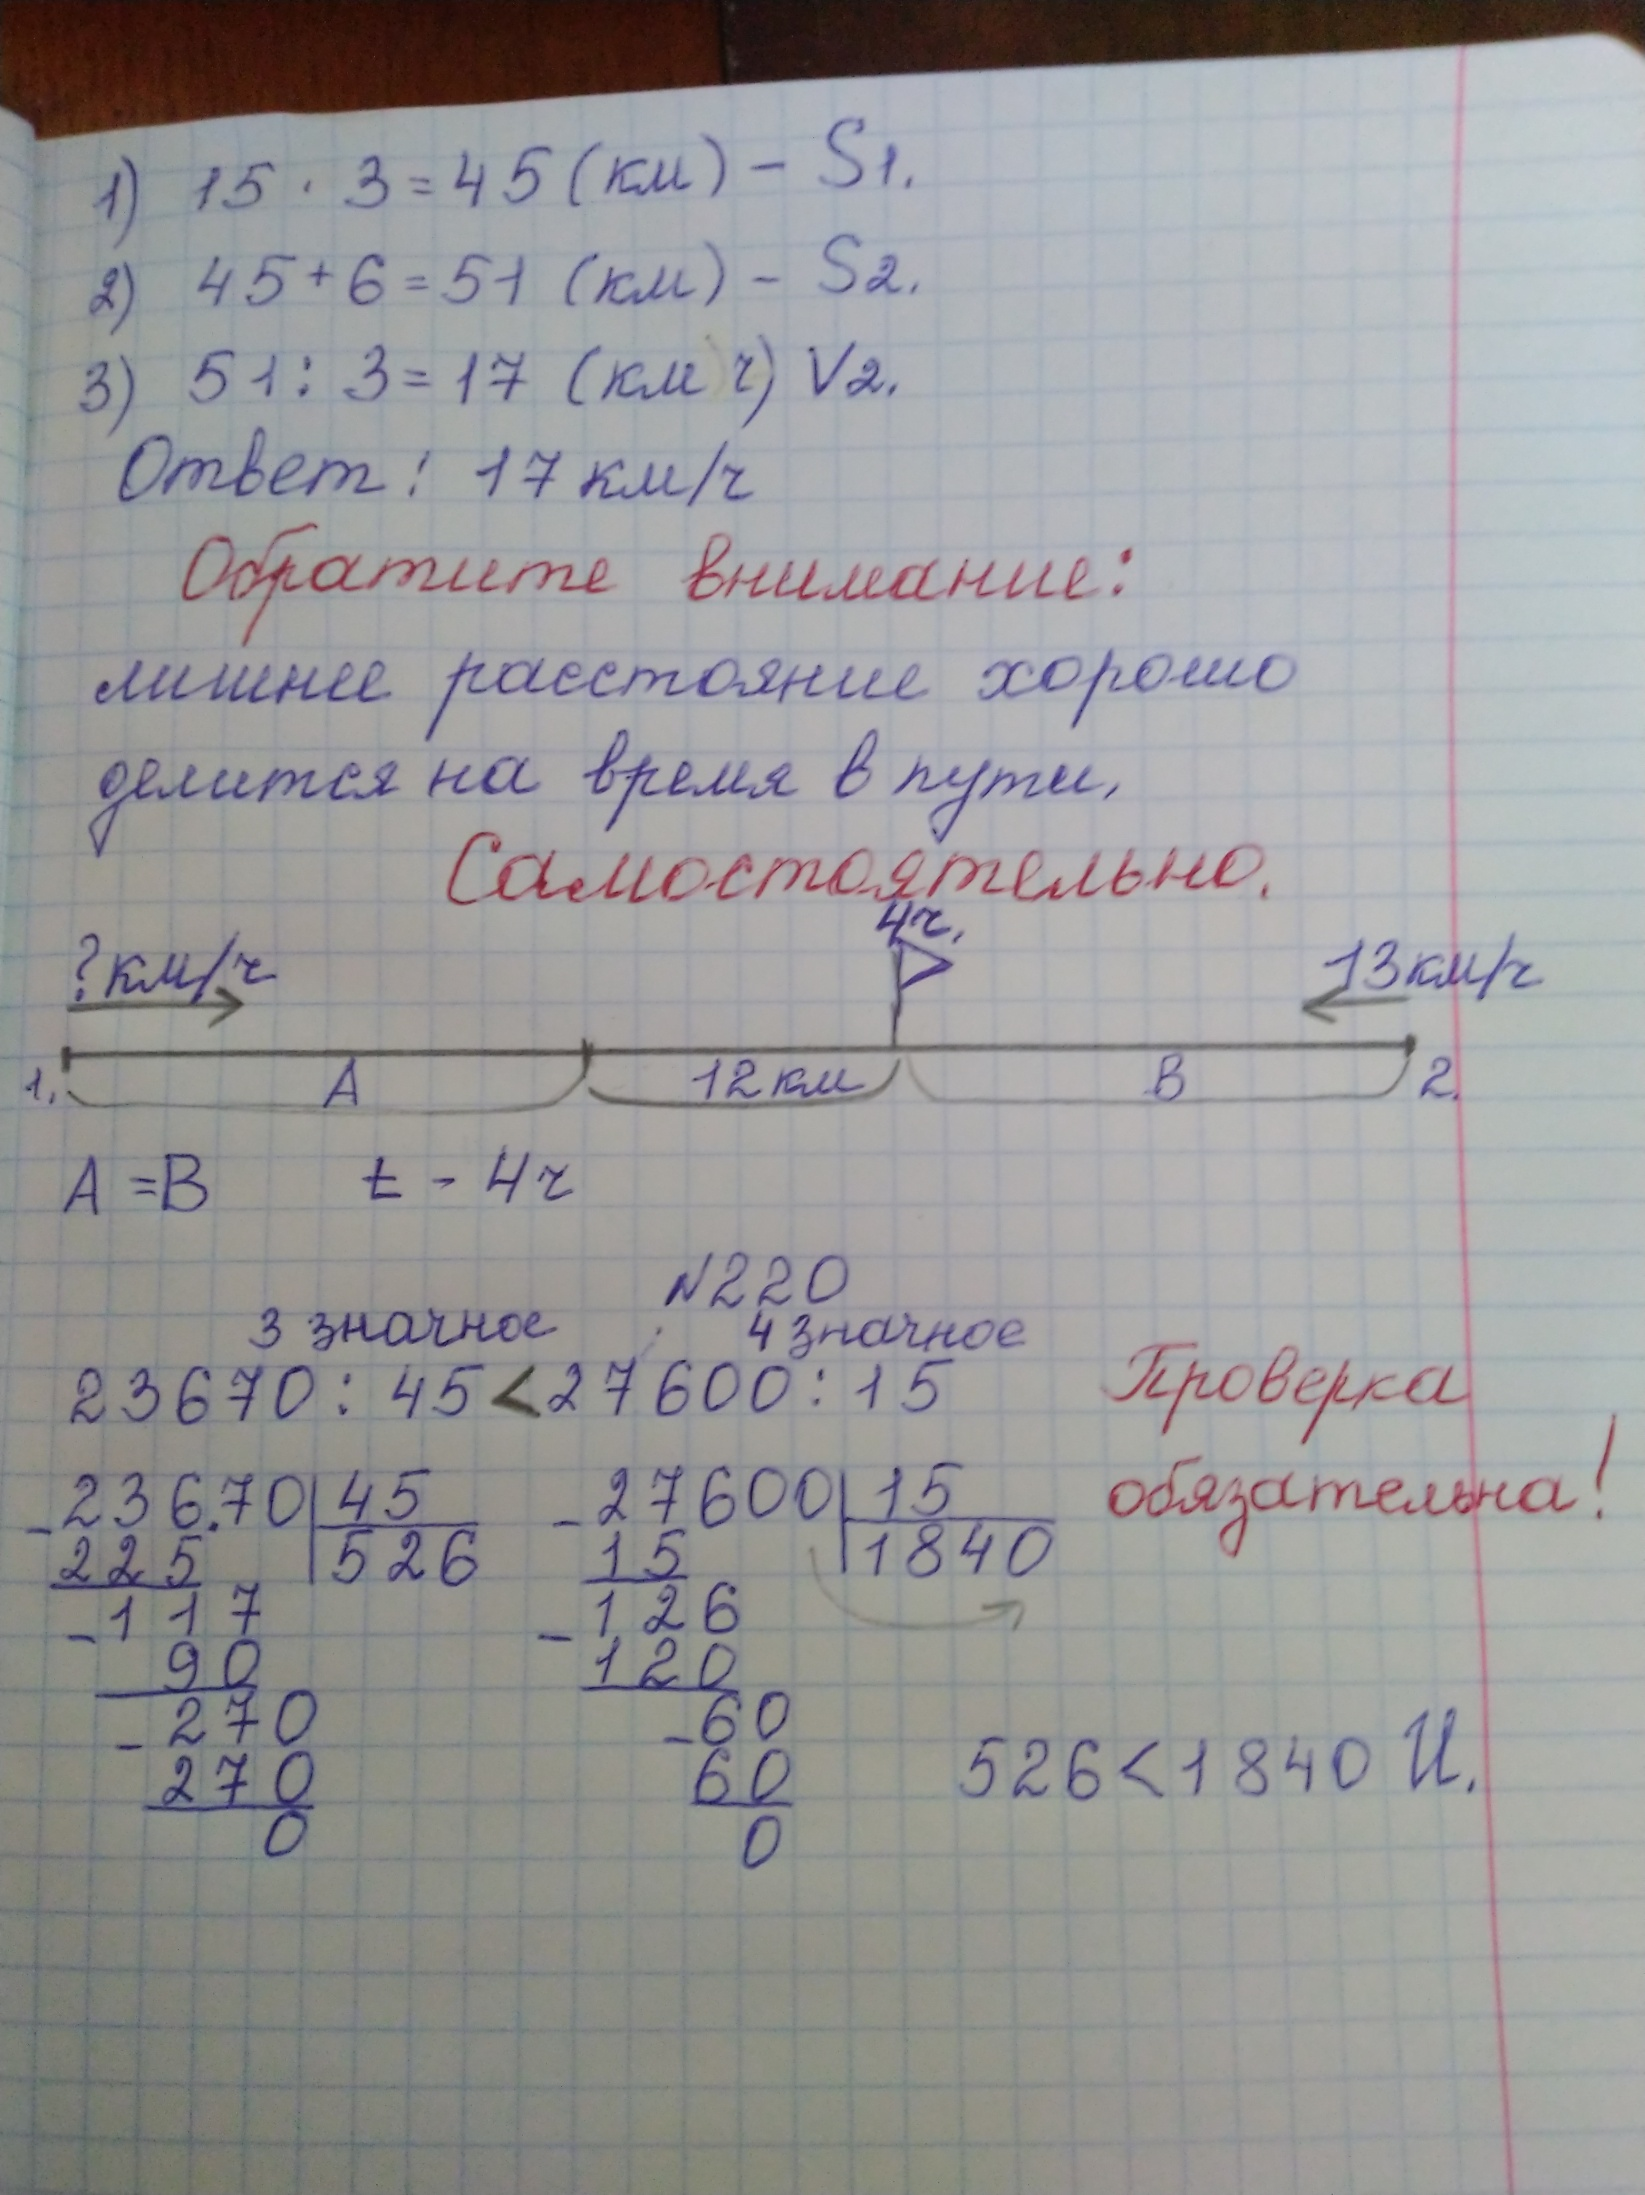 1) 15 · 3 = 45 (км) – S1.
2) 45 + 6 = 51 (км) – S2.
3) 51 : 3 = 17 (км ч) V2.
Ответ: 17 км/ч
Обратите внимание:
лишнее расстояние хорошо
делится на время в пути.
Самостоятельно.
4ч.
?км/ч 13км/ч
1. А 12км В 2.
А = В t - 4ч
№220
3 значное 4 значное
23670 : 45 < 27600 : 15 Проверка
обязательна!
- 236.70 | 45 - 27600 | 15
225 | 526 15 | 1840
- 117 - 126
90 120
- 270 - 60
270 60 526 < 1840 И.
0 0